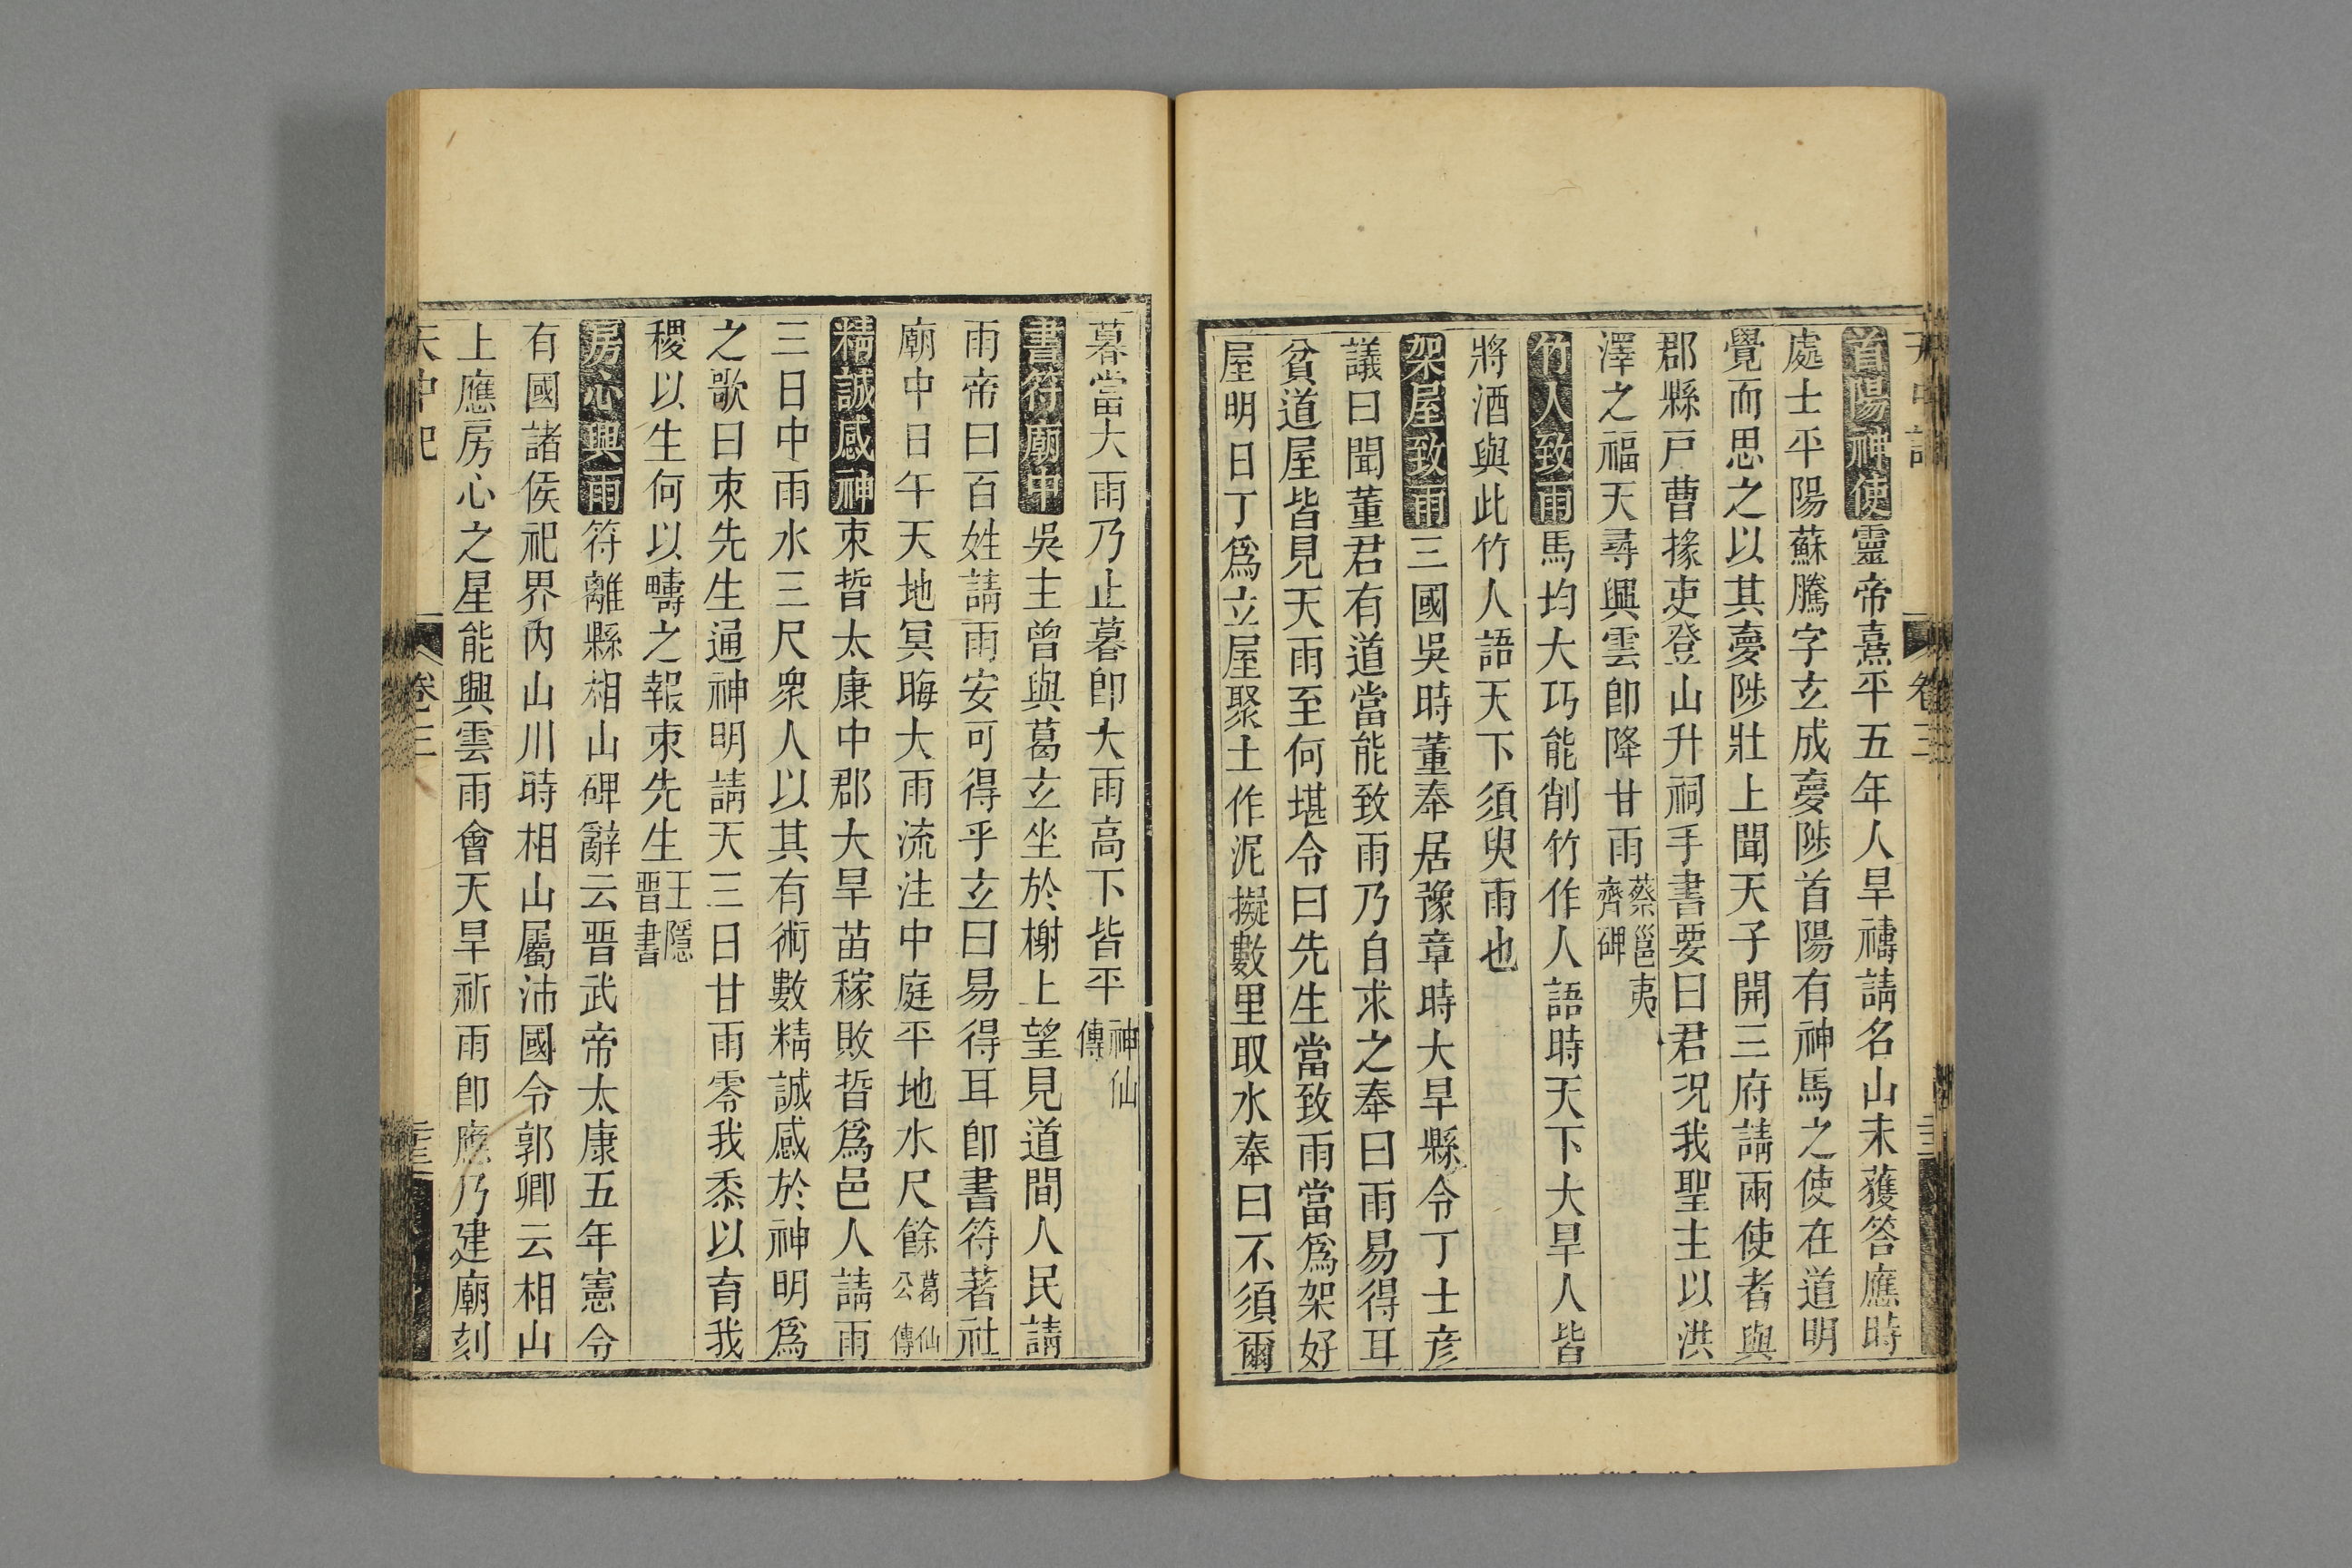 天中記
卷三
首陽神使靈帝熹平五年人旱禱請名山未獲答應時
處士平陽蘇騰字玄成夢陟首陽有神馬之使在道明
覺而思之以其夢陟壯上聞天子開三府請雨使者與
郡縣戸曹掾吏登山升祠手書要曰君況我聖主以洪
澤之福天尋興雲卽降甘雨蔡邕夷齊碑
竹人致雨馬均大巧能削竹作人語時天下大旱人皆
將酒與此竹人語天下須臾雨也
架屋致雨三國吳時董奉居豫章時大旱縣令丁士彦
議曰聞董君有道當能致雨乃自求之奉曰雨易得耳
貧道屋皆見天雨至何堪令曰先生當致雨當爲架好
屋明日丁爲立屋聚土作泥擬數里取水奉曰不須爾
暮當大雨乃止暮卽大雨高下皆平神仙傳
書符廟中吳主曾與葛玄坐於榭上望見道間人民請
雨帝曰百姓請雨安可得乎玄曰易得耳卽書符著社
廟中日午天地冥晦大雨流注中庭平地水尺餘葛仙公傳
精誠感神束晳太康中郡大旱苗稼敗晳爲邑人請雨
三日中雨水三尺衆人以其有術數精誠感於神明爲
之歌曰束先生通神明請天三日甘雨零我黍以育我
稷以生何以疇之報束先生王隱晉書
房心興雨符離縣相山碑辭云晉武帝太康五年憲令
有國諸侯祀界內山川時相山屬沛國令郭卿云相山
上應房心之星能興雲雨會天旱祈雨卽應乃建廟刻
天中記
卷三